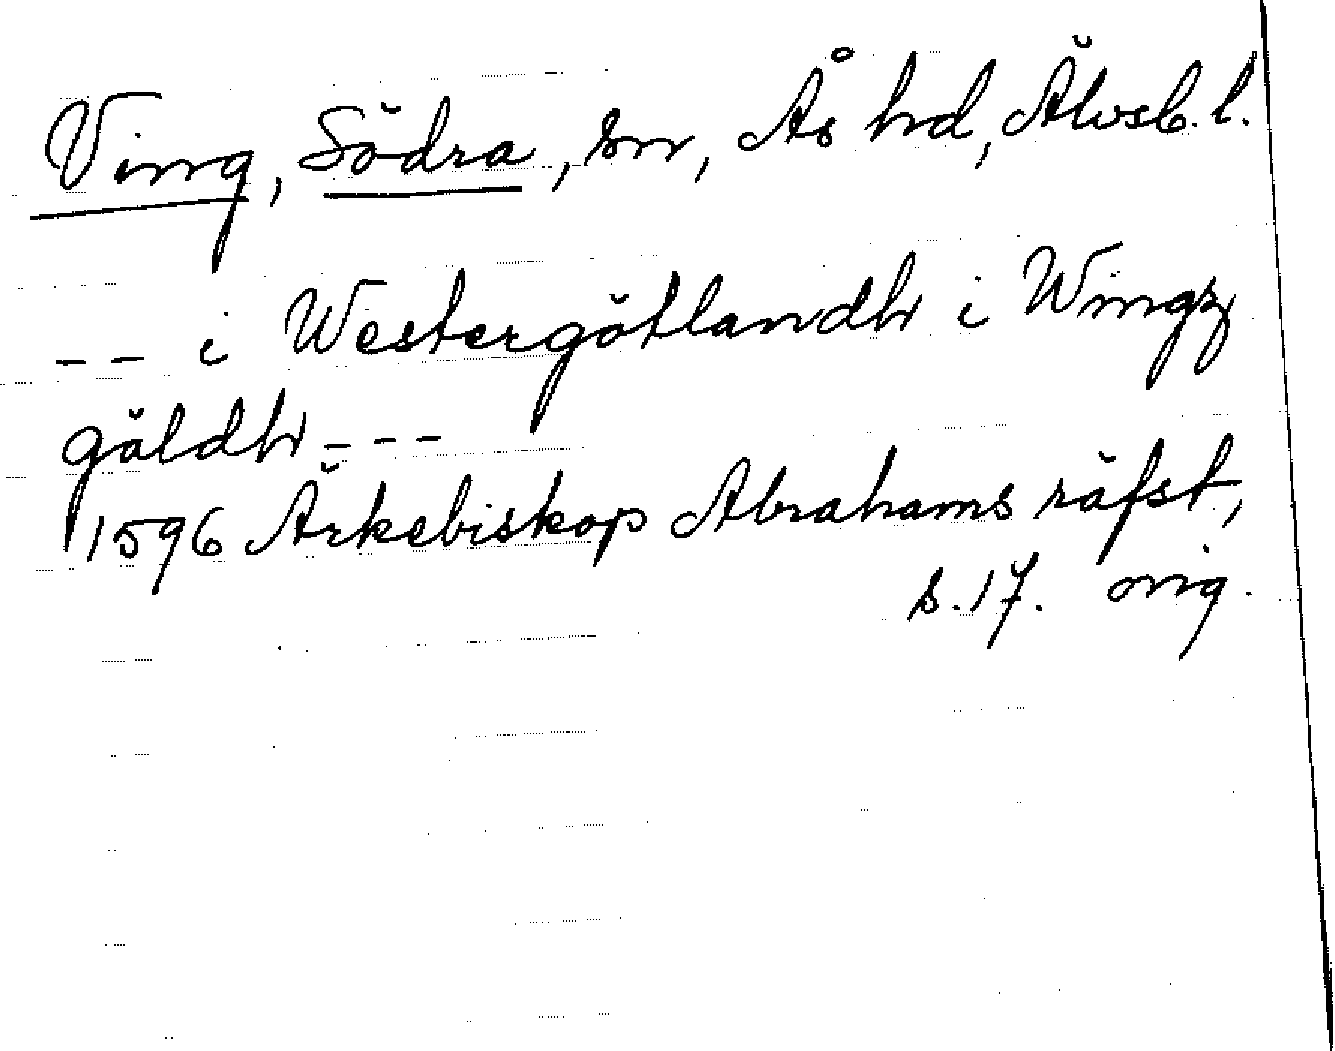 Ving, Södra, sn, Ås hd, Älvsb. l.
-- i Westergötlandh i Wingz
gäldh ---
1596 Ärkebiskop Abrahams räfst,
s. 17. orig.